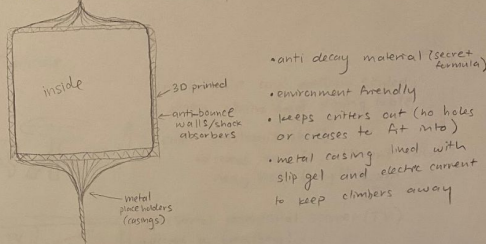 inside
3D printed
anti-bounce
walls/shock
absorbers
metal
placeholders
(casings)
• anti decay material (secret
formula)
• environment friendly
• keeps critters out (no holes
or creases to fit into)
• metal casing lined with
slip gel and electric current
to keep climbers away